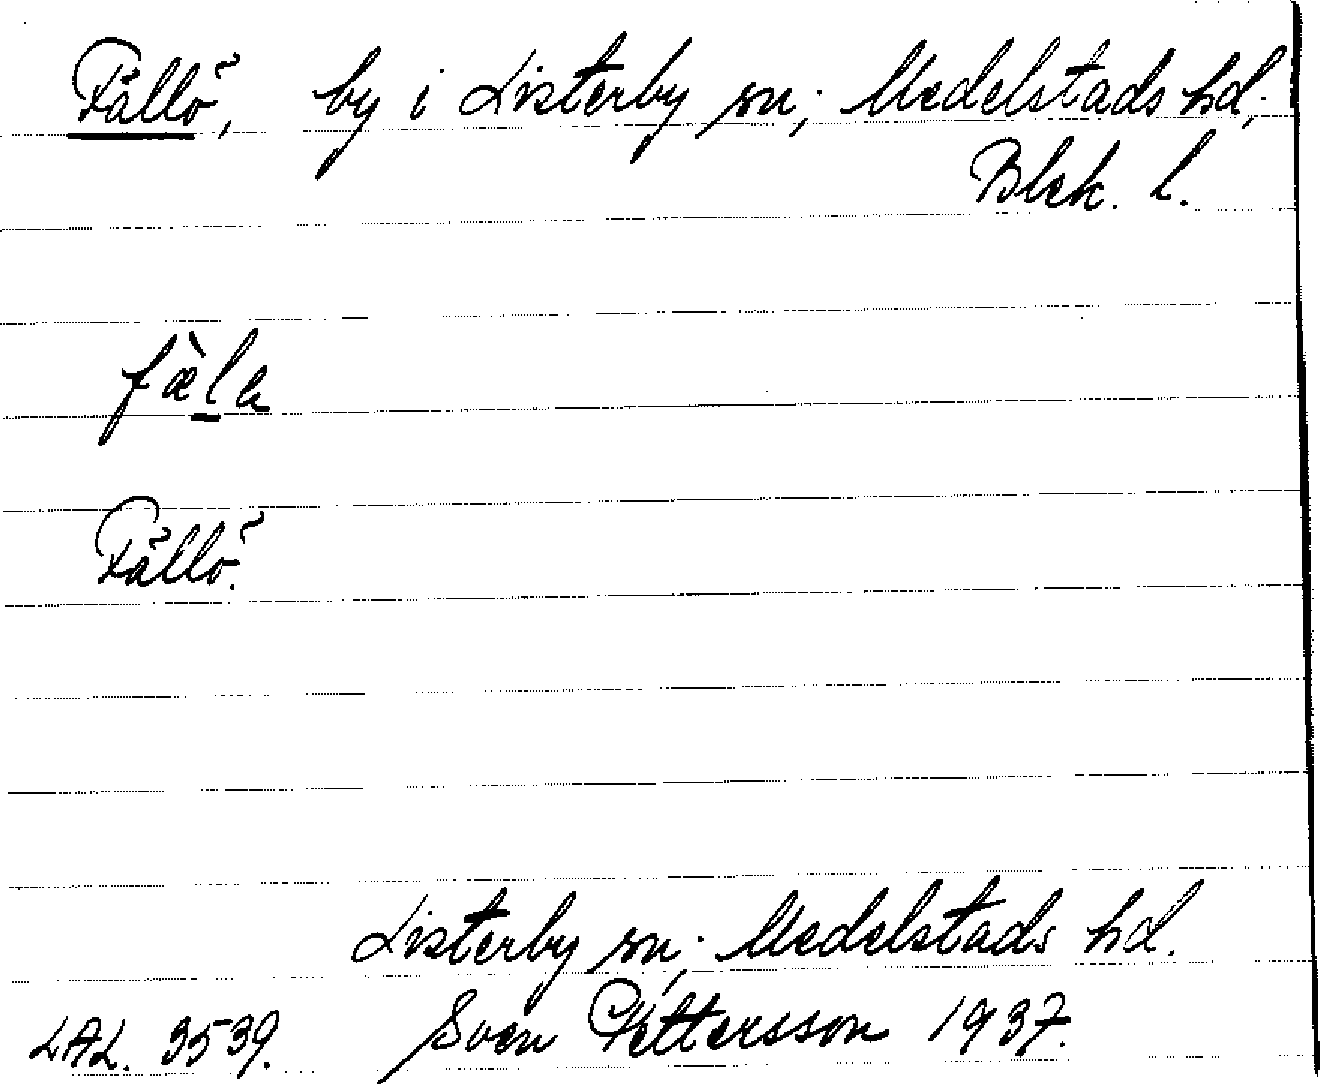 Fällö, by i Listerby sn; Medelstads hd,
Blek. l.
fæ̀l̲a
Fällö.
Listerby sn; Medelstads hd.
LAL. 3539. Sven Pettersson 1937.